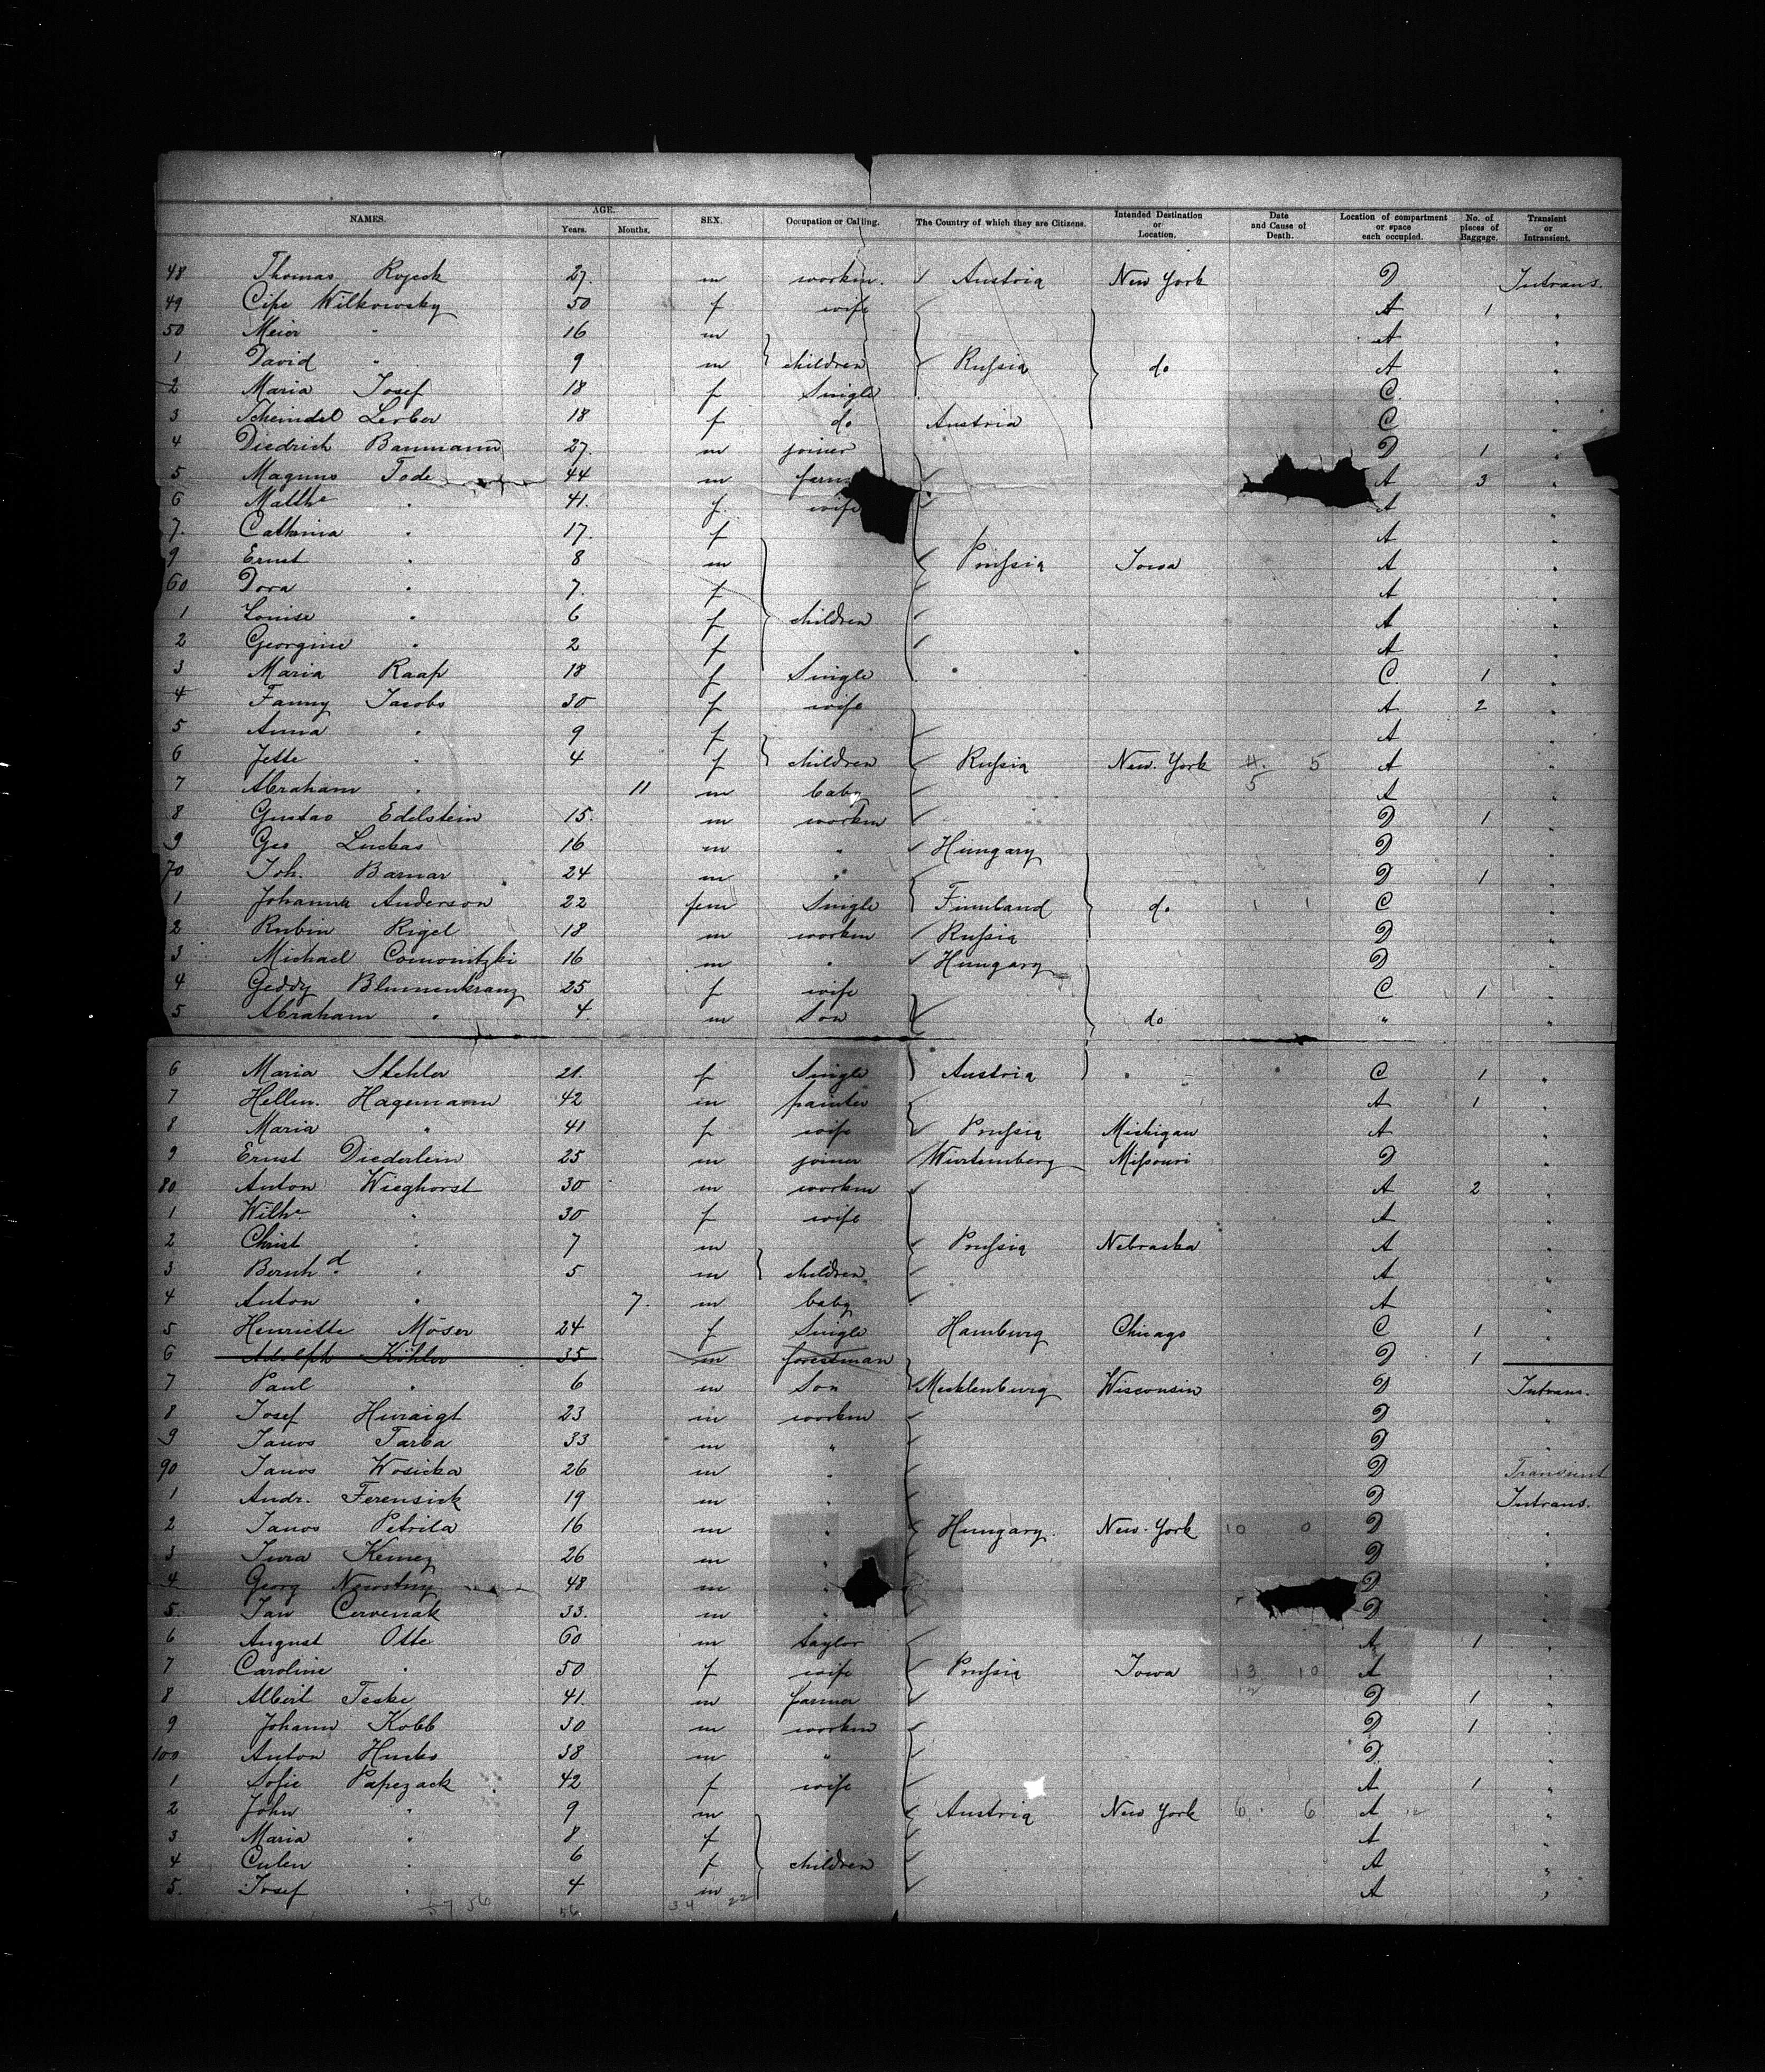 NAMES. AGE. Years. Months. SEX. Occupation or Calling. The Country of which they are Citizens. Intended Destination or Location. Date and Cause of Death. Location of compartment or space each occupied. No. of pieces of Baggage. Transient or Intransient.
48 Thomas 27. m workm. Austria New York D Intrans.
49 Cipe Wilkowsky 50 f wife A 1 "
50 Meier " 16 m A "
1 David " 9 m children Russia do A "
2 Maria Josef 18 f Single C. "
3 Scheindel Lerber 18 f do Austria C "
4 Diedrich Banmann 27. m joiner D 1 "
5 Magnus Tode 44 m farm A 3 "
6 Mathe " 41. f. wife A "
7. Cathrina " 17. f A "
9 Ernst " 8 m Prussia Iowa A "
60 Dora 7. f A "
1 Louise " 6 f children A "
2 Georgine " 2 f A "
3 Maria Raap 18 f Single C. 1 "
4 Fanny Jacobs 30 f wife A 2 "
5 Anna " 9 f A "
6 Jette " 4 f children Russia New York 4. 5 5 A "
7 Abraham " 11 m baby A "
8 Gustav Edelstein 15. m workm D 1 "
9 Geo Luckas 16 m " Hungary D "
70 Joh. Barnar 24 m " D 1 "
1 Johanna Anderson 22 fem Single Finnland do 1 1 C "
2 Rubin Rigel 18 m workm Russia D "
3 Michael Comonitzki 16 m " Hungary D "
4 Geddy Blumenkranz 25 f wife C 1 "
5 Abraham " 4. m Son do " "
6 Maria Stehler 21 f Single Austria " C 1 "
7 Hellm. Hagemann 42 m painter A 1 "
8 Maria " 41 f wife Prussia Michigan A "
9 Ernst Diederlein 25 m joiner Wurtemberg Missouri D "
80 Anton Wieghorst 30 m workm A 2 "
1 Wilhe. " 30 f wife A "
2 Christ " 7 m Prussia Nebraska A "
3 Bernhd. " 5 m children A "
4 Anton " 7. m baby A "
5 Henriette Möser 24 f Single Hamburg Chicago C 1 "
6 Adolph Köhler 35 m forestman D 1
7 Paul " 6 m Son Mecklenburg Wisconsin D Intrans.
8 Josef Huraigt 23 m workm D "
9 Janos Tarba 33 m " D "
90 Janos Wosicka 26 m " D Transient
1 Andr. Ferensick 19 m " D Intrans.
2 Janos Petrila 16 m " Hungary. New York 10 0 D "
3 Jura Kemez 26 m " D "
4 Georg 48 m " D "
5. Jan Cervenak 33. m " D "
6 August Otte 60 m taylor A 1 "
7 Caroline " 50 f wife Prussia Iowa 13 10 A "
8 Albert Teske 41. m farmer 12 D 1 "
9 Johann Kobb 30 m workm D 1 "
100 Anton Husko 38 m " D. "
1 Sofie Papezack 42 f wife A 1 "
2 John " 9 m Austria New York 6 6 A 12 "
3 Maria " 8 f A "
4 Culen " 6 f children A "
5. Josef " 4 m A "
57 56 56 34 22